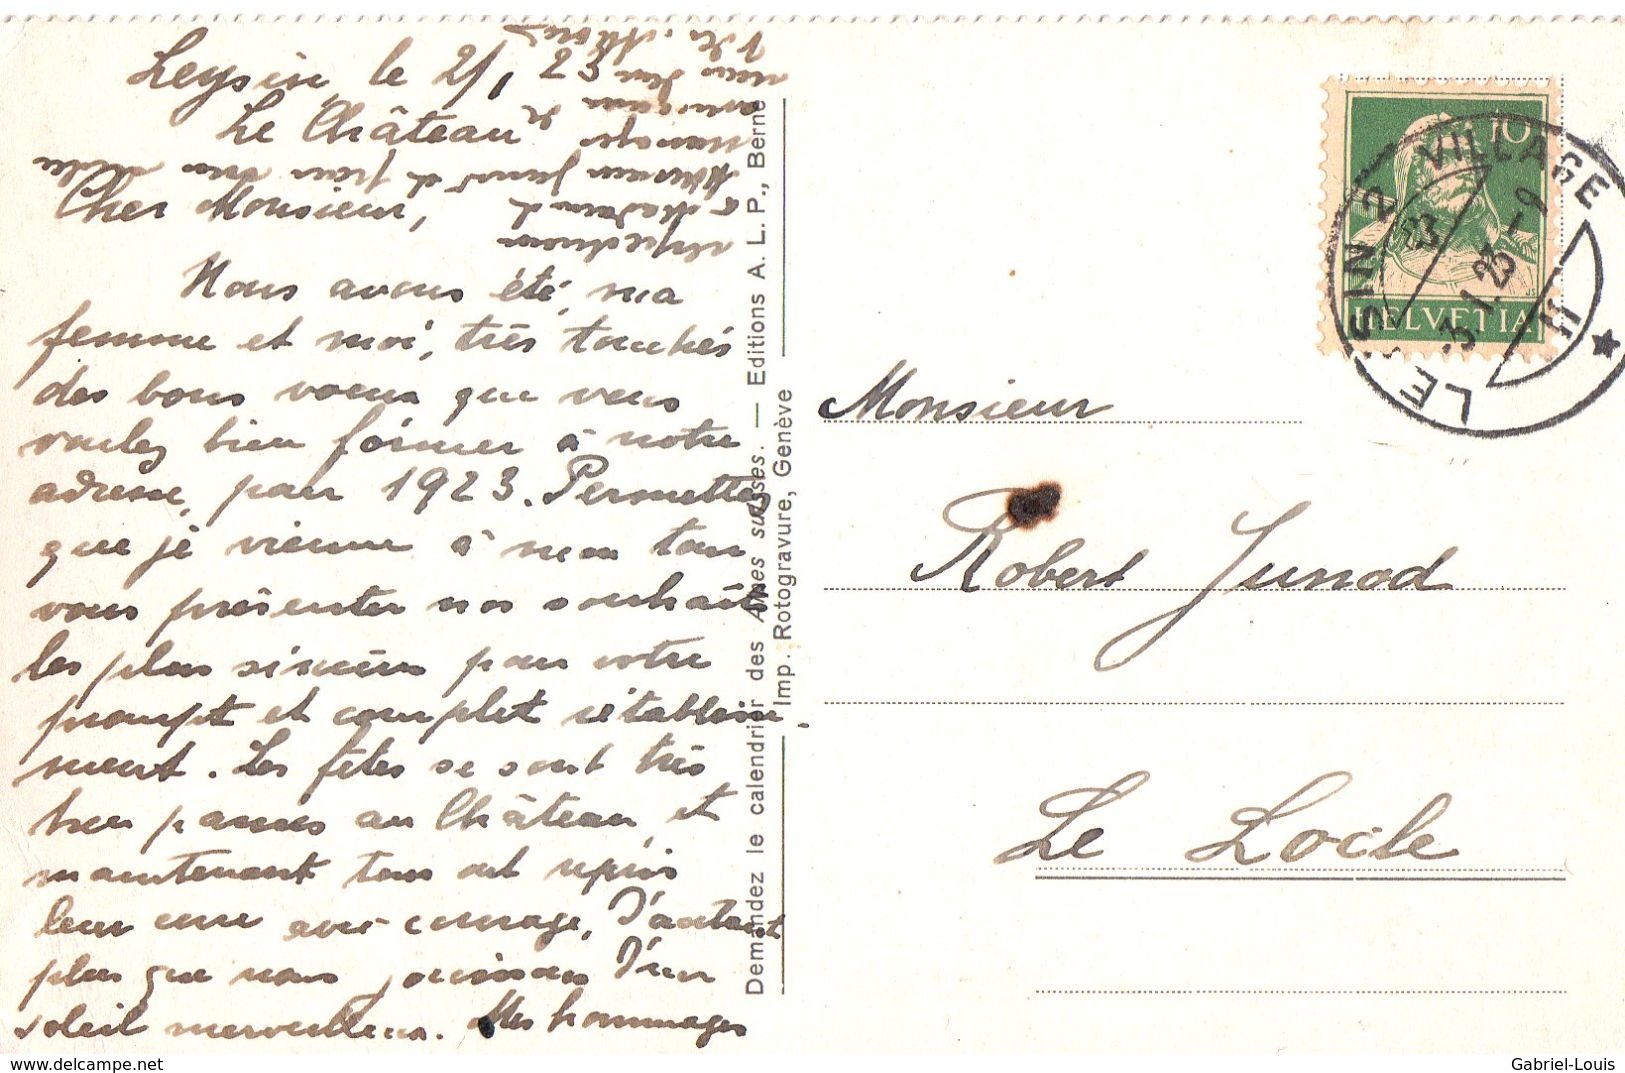 Leysin, le 2/1 23
Le Château
Cher Monsieur,
Nous avons été, ma
femme et moi, très touchés
des bons voeux que vous
voulez bien former à notre
adresse, pour 1923. Permettez
que je vienne à mon tour
vous présenter nos souhaits
les plus sincères pour votre
prompt et complet rétablisse-
ment. Les fêtes se sont très
bien passées au Château, et
maintenant tous ont repris
leur cure avec courage, d'autant
plus que nous jouissons d'un
soleil merveilleux. Mes hommages
respectueux
à Madame
Monsieur Junod et pour vous
Demandez le calendrier des Alpes suisses. — Editions A. L. P., Berne
Imp. Rotogravure, Genève
10
HELVETIA
JS
LEYSIN VILLAGE
3.1.23-9
Monsieur
Robert Junod
Le Locle
www.delcampe.net
Gabriel-Louis